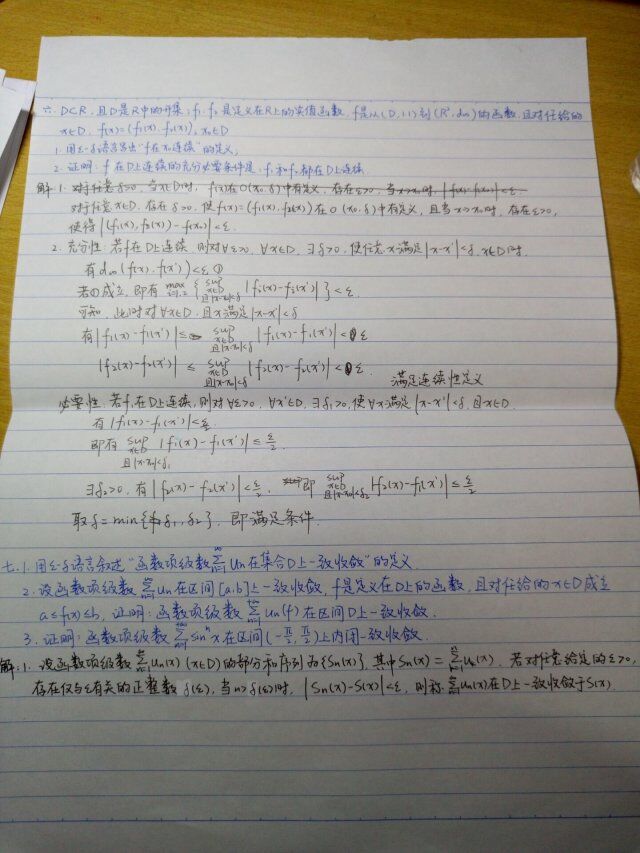 六. D⊂R, 且D是R中的开集, f₁, f₂ 是定义在R上的实值函数, f是从(D, |·|)到(R², d∞)的函数, 且对任给的
x∈D, f(x)=(f₁(x), f₂(x)), x₀∈D
1. 用ε-δ语言写出"f在x₀连续"的定义,
2. 证明: f 在D上连续的充分必要条件是, f₁和f₂都在D上连续.
解 1. 对于任意δ>0, 当x∈D时, f(x)在O(x₀,δ)中有定义, 存在ε>0, 当x→x₀时, |f(x)-f(x₀)|<ε
对于任意x∈D, 存在δ>0, 使f(x)=(f₁(x), f₂(x))在O(x₀,δ)中有定义, 且当x→x₀时, 存在ε>0,
使得|(f₁(x), f₂(x))-f(x₀)|<ε.
2. 充分性: 若f在D上连续, 则对∀ε>0, ∀x∈D, ∃δ>0, 使任意x满足|x-x'|<δ, x∈D时,
有d∞(f(x), f(x'))<ε ①
若①成立, 即有 max i=1,2 { sup x∈D 且|x-x₀|<δ |fᵢ(x)-fᵢ(x')| }<ε.
可知, 此时对∀x∈D, 且x满足|x-x'|<δ
有|f₁(x)-f₁(x')|≤ sup x∈D 且|x-x₀|<δ |f₁(x)-f₁(x')|<ε
|f₂(x)-f₂(x')| ≤ sup x∈D 且|x-x₀|<δ |f₂(x)-f₂(x')|<ε 满足连续性定义
必要性. 若f₁在D上连续, 则对∀ε>0, ∀x'∈D, ∃δ₁>0, 使∀x满足|x-x'|<δ₁ 且x∈D.
有|f₁(x)-f₁(x')|<ε/2
即有 sup x∈D 且|x-x₀|<δ₁ |f₁(x)-f₁(x')|≤ε/2.
∃δ₂>0, 有|f₂(x)-f₂(x')|<ε/2, 即 sup x∈D 且|x-x₀|<δ₂ |f₂(x)-f₁(x')|≤ε/2
取δ=min{δ₁,δ₂}, 即满足条件.
七. 1. 用ε-δ语言叙述"函数项级数∑uₙ在集合D上一致收敛"的定义.
2. 设函数项级数∑uₙ在区间[a,b]上一致收敛, f是定义在D上的函数, 且对任给的x∈D成立
a≤f(x)≤b, 证明: 函数项级数∑uₙ(f)在区间D上一致收敛.
3. 证明: 函数项级数∑sinⁿx在区间(-π/2, π/2)上内闭一致收敛.
解: 1. 设函数项级数∑uₙ(x) (x∈D)的部分和序列为{Sn(x)}, 其中Sn(x)=∑uₖ(x). 若对任意给定的ε>0,
存在仅与ε有关的正整数δ(ε), 当n>δ(ε)时, |Sn(x)-S(x)|<ε, 则称∑uₙ(x)在D上一致收敛于S(x).